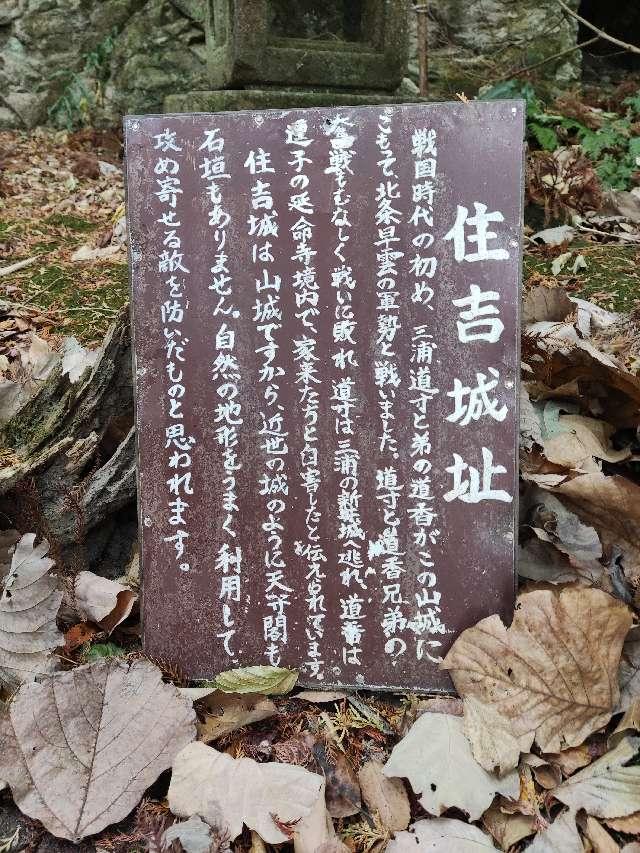 住吉城址
戦国時代の初め、三浦道寸と弟の道香がこの山城に
こもって、北条早雲の軍勢と戦いました。道寸と道香兄弟の
奮戦もむなしく戦いに敗れ、道寸は三浦の新井城へ逃れ、道香は
逗子の延命寺境内で、家来たちと自害したと伝えられています。
住吉城は山城ですから、近世の城のように天守閣も
石垣もありません。自然の地形をうまく利用して、
攻め寄せる敵を防いだものと思われます。